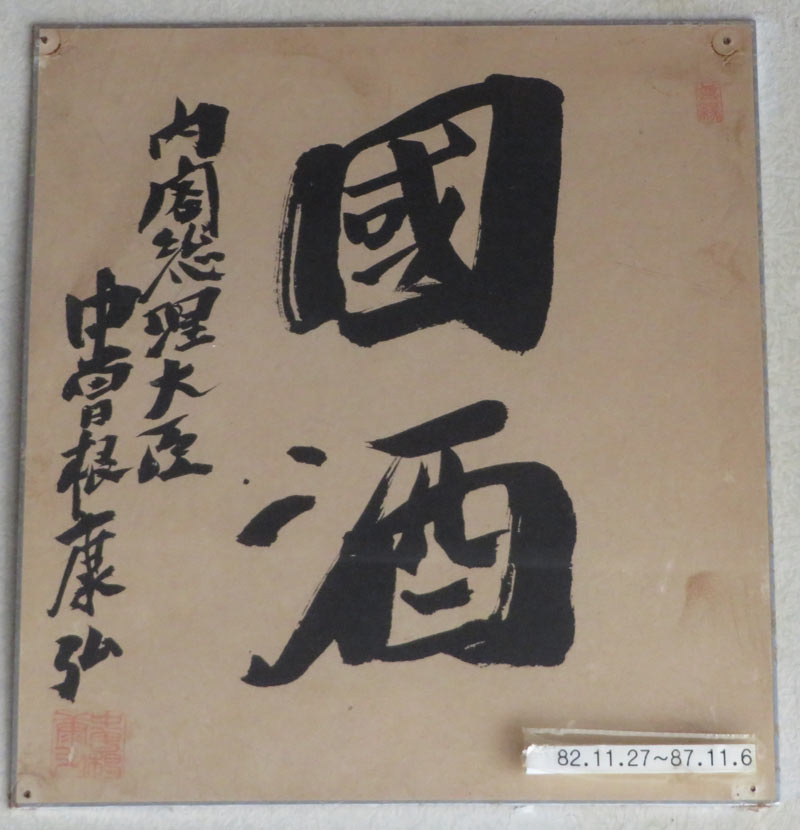 國酒
内閣総理大臣
中曽根康弘
82.11.27~87.11.6